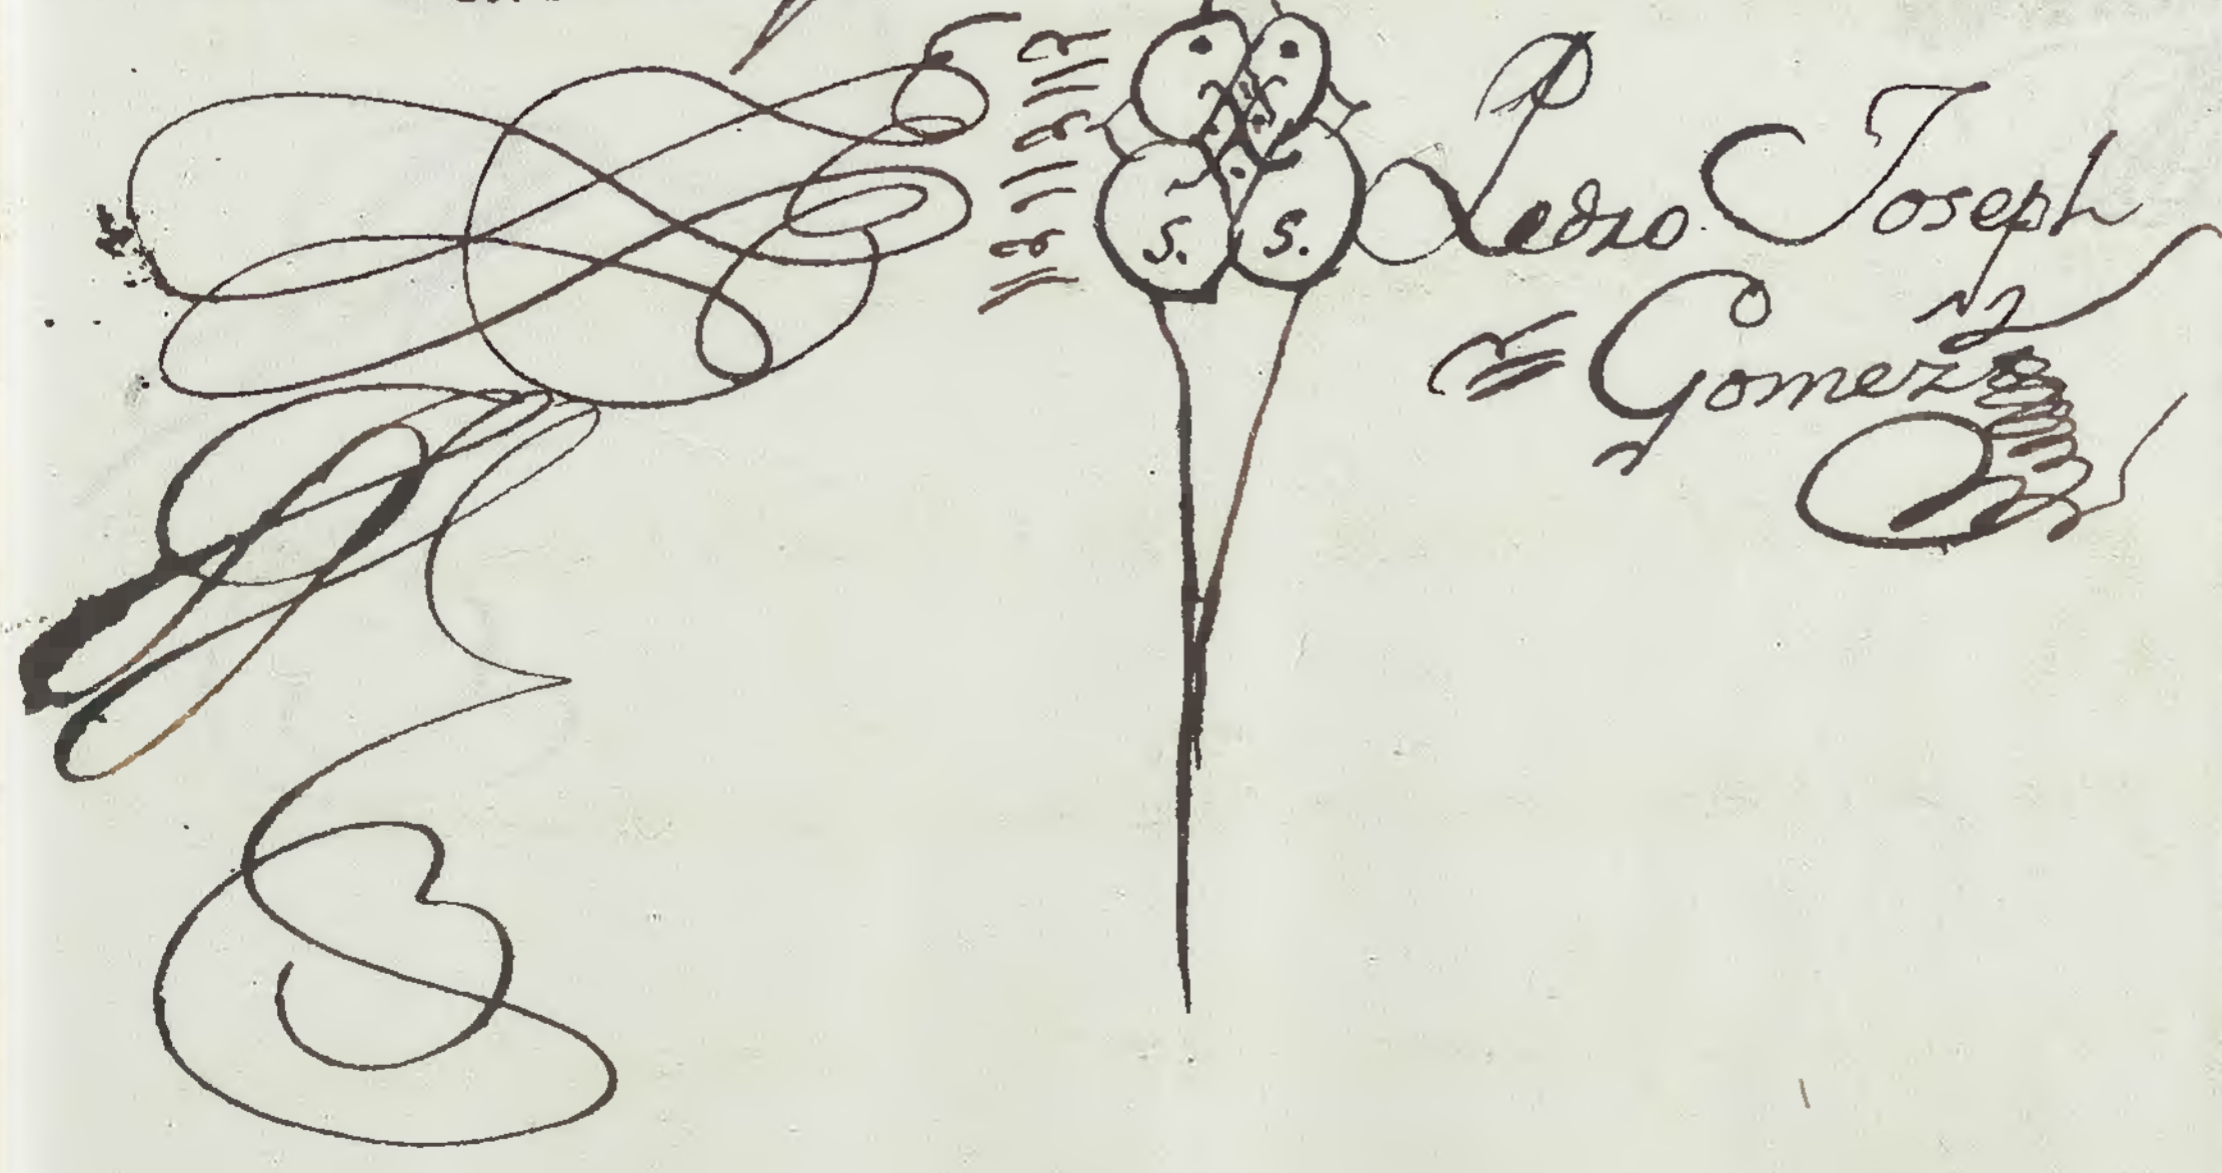 S. S. Pedro Joseph
Gomez